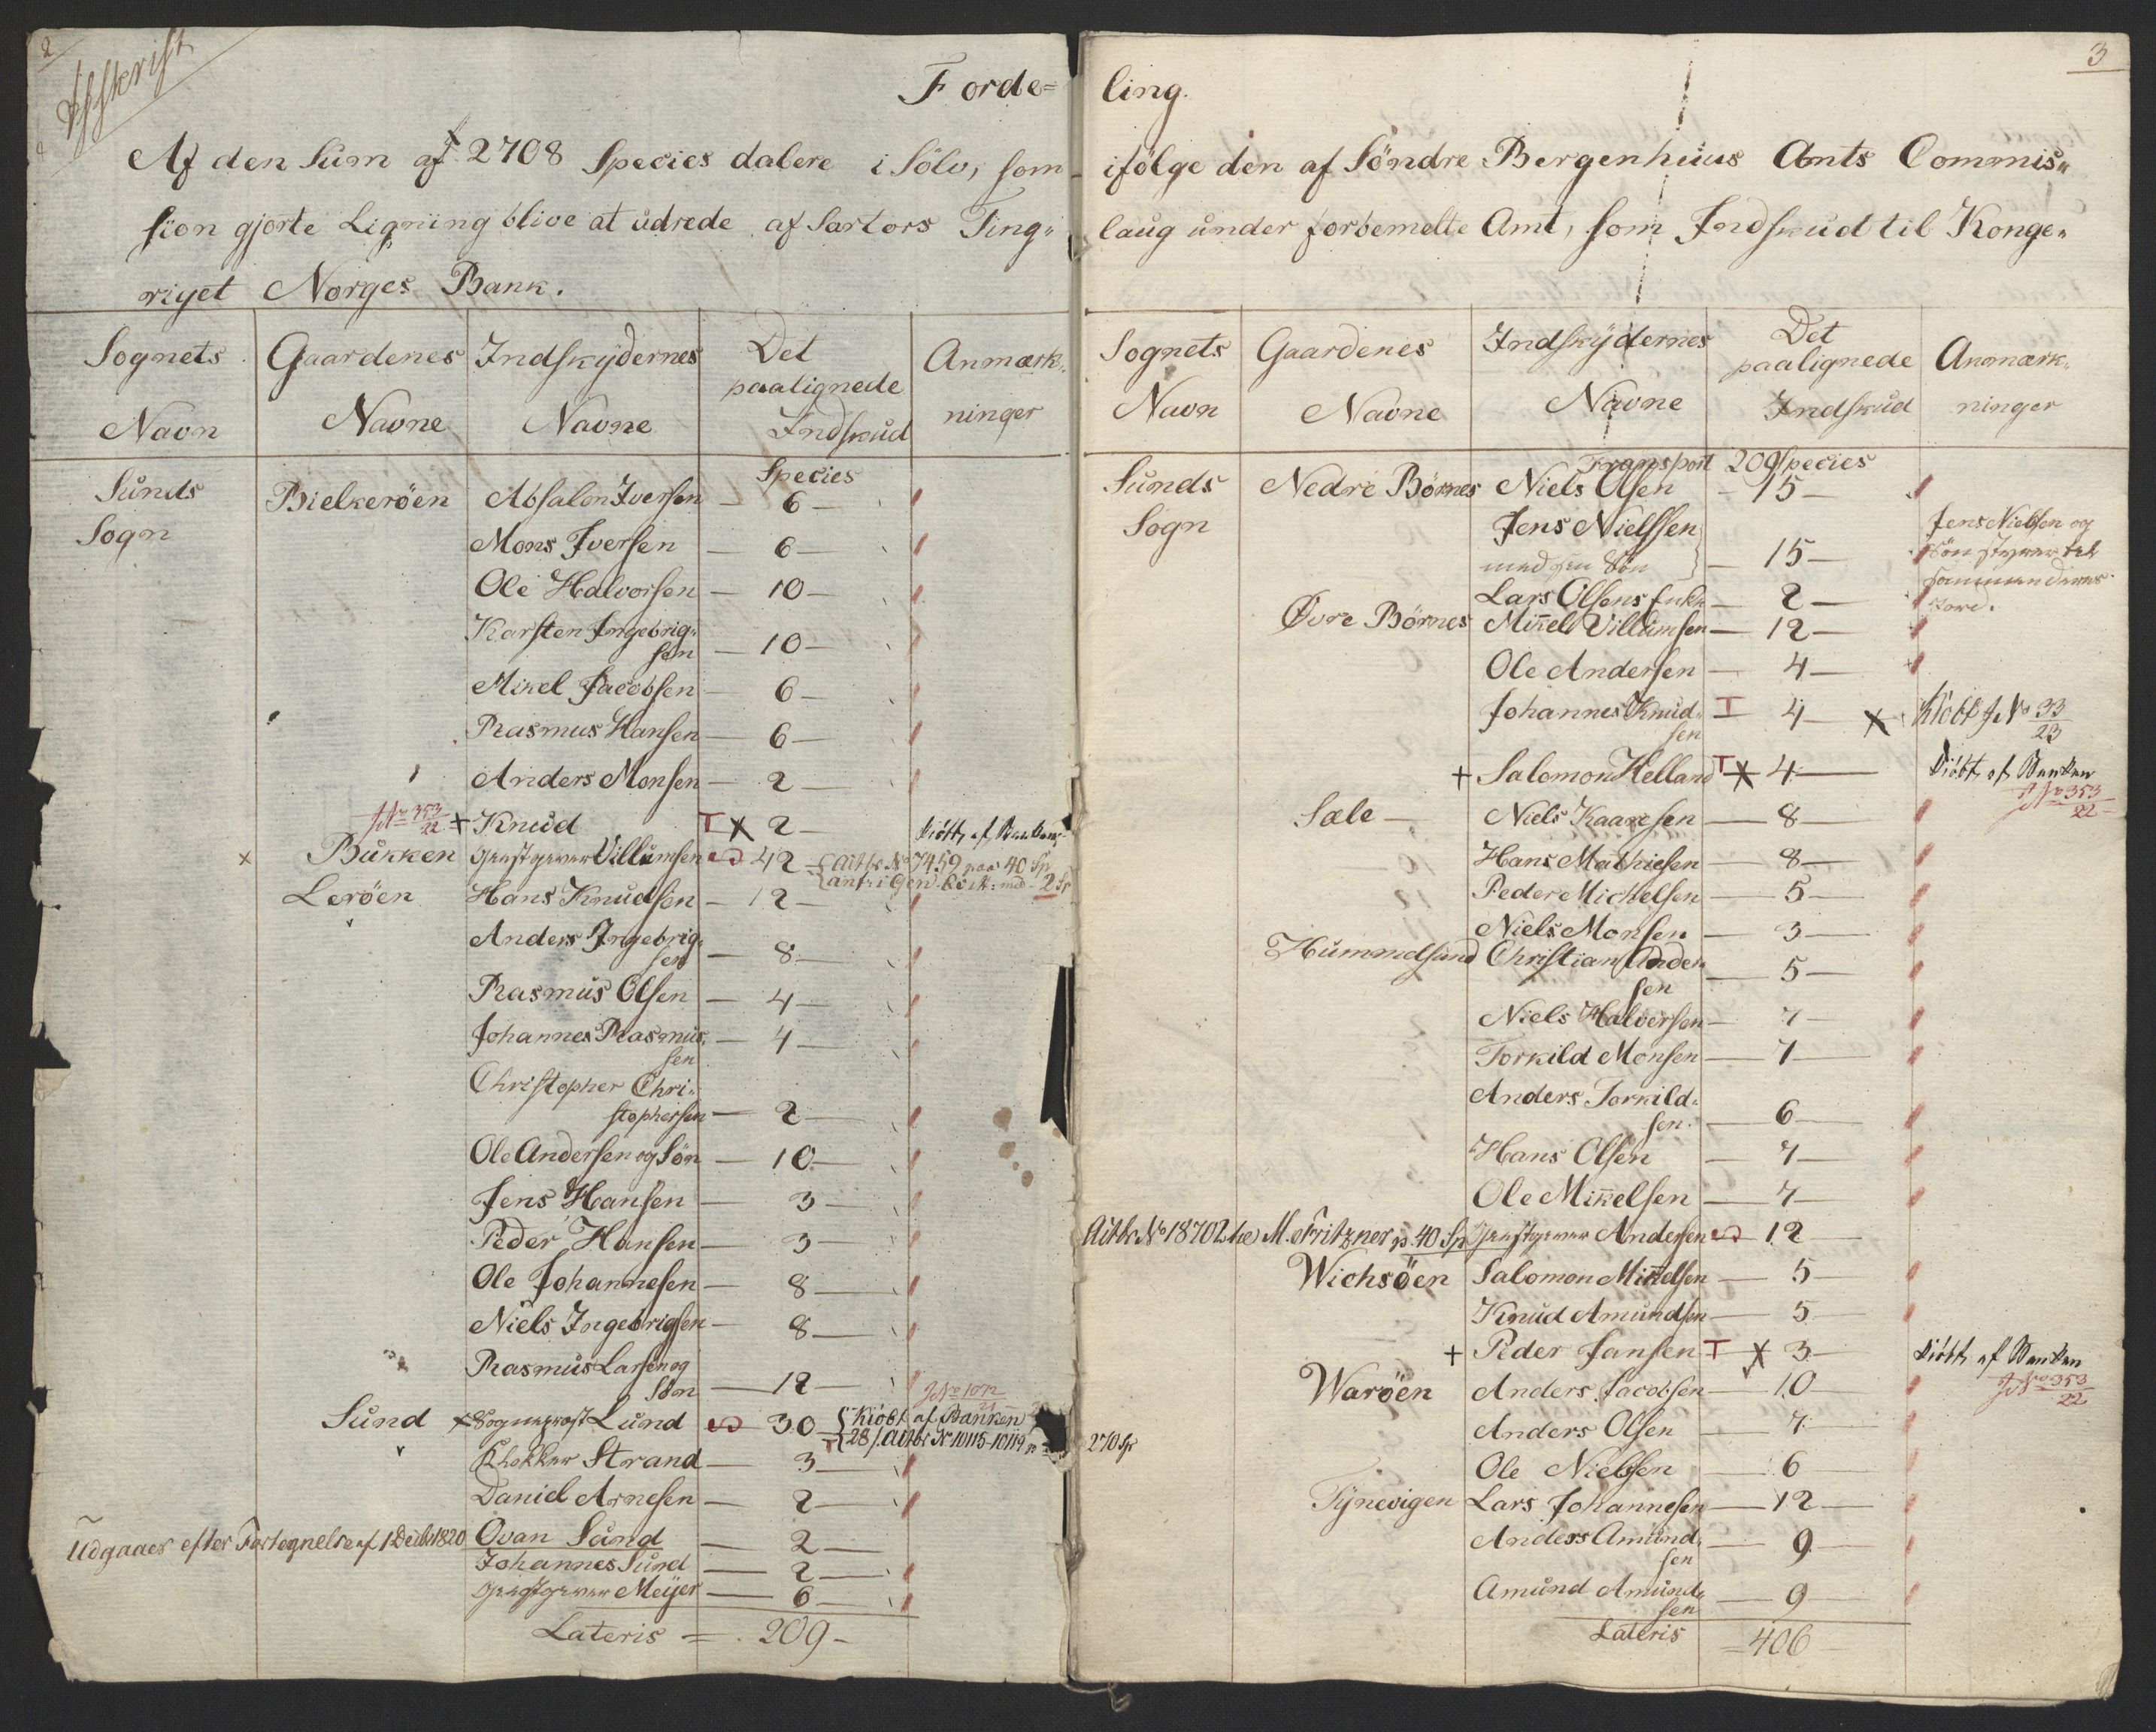 2
Afskrift
Forde=
Af den Sum af 2708 Species dalere i Sölv, som
sion gjorte Ligning blive at udrede af Sartors Ting„
riget Norges Bank.
Sognets Navn
Gaardenes Navne
Indskydernes Navne
Det paalignede Indskud
Anmærk„ninger
Species
Sunds Bielkeröen Absalon Iversen — 6 —
Sogn
Mons Iversen — 6 —
Ole Halvorsen — 10 —
Karsten Ingebrig„
sen — 10 —
Mikel Jacobsen — 6 —
Rasmus Hansen — 6 —
Anders Monsen — 2 —
J No 353/22 + Knud T X 2 — kiöbt af Banken
x Bukken Gjestgiver Villumsen 42 { Actbr No 7459 paa 40 Sp
2 Sp
Leröen Hans Knudsen — 12 —
Anders Ingebrig„
sen — 8 —
Rasmus Olsen — 4 —
Johannes Rasmus„ — 4 —
sen
Christopher Chri„
stophersen — 2 —
Ole Andersen og Sön — 10 —
Jens Hansen — 3 —
Peder Hansen — 3 —
Ole Johannesen — 8 —
Niels Ingebrigsen — 8 —
Rasmus Larsen og
Sön — 12 —
Sund x Sogneprost Lund 30 { Kiöbt af Banken
28/ Actbr No 10115-10119
Klokker Strand — 3 —
Daniel Arnesen — 2 —
Udgaaer efter Fortegnelse af 1 Decbr 1820 Ovan Sund — 2 —
Johannes Sund — 2 —
Gjestgiver Meijer — 6 —
Lateris = 209 —
3
ling.
ifölge den af Söndre Bergenhuus Amts Commis„
laug under forbemelte Amt, som Indskud til Konge„
Sognets Navn
Gaardenes Navne
Indskydernes Navne
Det paalignede Indskud
Anmærk„ninger
Transport 209 Species
Sunds Nedre Börnes Niels Olsen — 15 —
Sogn
Jens Nielssen
med sin Sön } — 15 —
Jens Nielsen og
Sön
sammen deres
Jord.
Lars Olsens Enke — 2 —
Øvre Börnes Mikkel Villumsen — 12 —
Ole Andersen — 4 —
Johannes Knud„
sen T 4 — X Kiöbt J No 33/23
+ Salomon Helland T X 4 — kiöbt af Banken
J No 353/22
Sæle — Niels Kaaresen — 8 —
Hans Mathiesen — 8 —
Peder Michelsen — 5 —
Niels Monsen — 3 —
Hummelsund Christian Ander
sen — 5 —
Niels Halversen — 7 —
Torkild Monsen — 7 —
Anders Torkild„
sen — 6 —
Hans Olsen — 7 —
Ole Mikkelsen — 7 —
Actbr No 18702 M. Fritzner p. 40 Sp Gjestgiver Andersen 12 —
Wichsöen Salomon Mikkelsen — 5 —
Knud Amundsen — 5 —
+ Peder Jansen T X 3 — kiöbt af Banken
J No 353/22
Waröen Anders Jacobsen — 10 —
Anders Olsen — 7 —
270 Sp
Ole Nielsen — 6 —
Tÿnevigen Lars Johannesen — 12 —
Anders Amund„
sen — 9 —
Amund Amund„
sen — 9 —
Lateris = 406 —